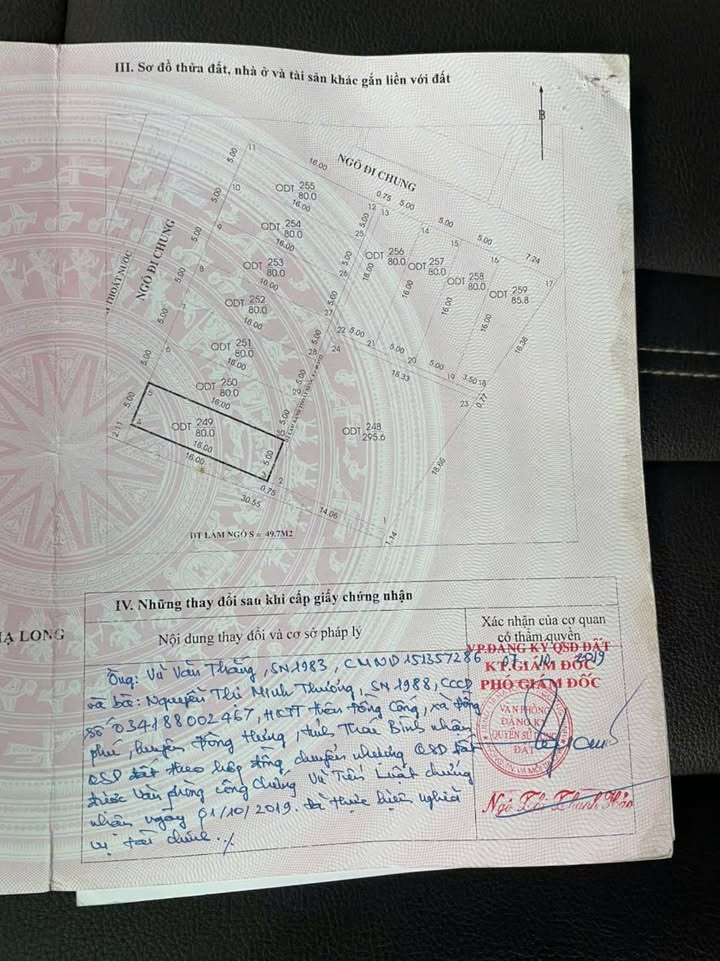 III. Sơ đồ thửa đất, nhà ở và tài sản khác gắn liền với đất
B
NGÕ ĐI CHUNG
NGÕ ĐI CHUNG
THOÁT NƯỚC
5.00 11 16.00 0.75 5.00 5.00 5.00 7.24
10 ODT 255 80.0 16.00 12 13 14 15 16 17
5.00 9 ODT 254 80.0 16.00 25 5.00
ODT 256 80.0 16.00
ODT 257 80.0 16.00
ODT 258 80.0 16.00
ODT 259 85.8 16.38
5.00 8 ODT 253 80.0 16.00 26
5.00 7 ODT 252 80.0 16.00 27 22 5.00 21 5.00 20 5.00 19 3.50 18
24 18.33 23 0.77
5.00 6 ODT 251 80.0 16.00 28 5.00
5.00 5 ODT 250 80.0 16.00 29 5.00
ODT 249 80.0 16.00 5.00
ODT 248 295.6 18.66
2.11 4 16.00 0.75 2
30.55 14.06 1 1.14
ĐT LÀM NGÕ S = 49.7M2
HẠ LONG
IV. Những thay đổi sau khi cấp giấy chứng nhận
Nội dung thay đổi và cơ sở pháp lý
Xác nhận của cơ quan
có thẩm quyền
Ông: Vũ Văn Thắng, SN 1983, CMND 151357286
và bà: Nguyễn Thị Minh Thương, SN 1988, CCCD
số 034188002467, HKTT thôn Đồng Công, xã Đông
phú, huyện Đông Hưng, tỉnh Thái Bình nhận
QSD đất theo hợp đồng chuyển nhượng QSD đất
được Văn phòng công chứng Vũ Tiến Luật chứng
nhận ngày 01/10/2019. Đã thực hiện nghĩa
vụ tài chính./.
VP.ĐĂNG KÝ QSD ĐẤT
07 10 2019
KT.GIÁM ĐỐC
PHÓ GIÁM ĐỐC
VĂN PHÒNG
ĐĂNG KÝ
QUYỀN SỬ DỤNG
ĐẤT
Ngô Thị Thanh Hảo